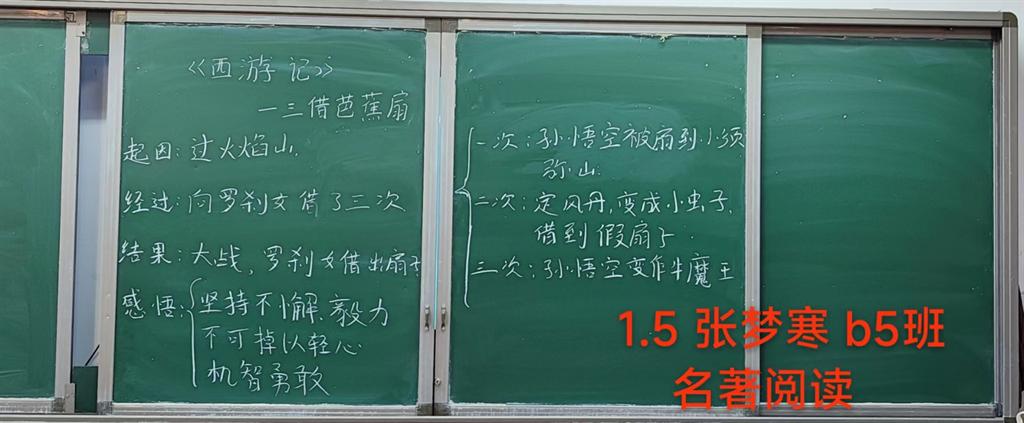 《西游记》
一三借芭蕉扇
起因:过火焰山.
经过:向罗刹女借了三次
结果:大战,罗刹女借出扇子
感悟:坚持不懈,毅力
不可掉以轻心
机智勇敢
一次:孙悟空被扇到小须
弥山.
二次:定风丹,变成小虫子,
借到假扇子.
三次:孙悟空变作牛魔王
1.5 张梦寒 b5班
名著阅读